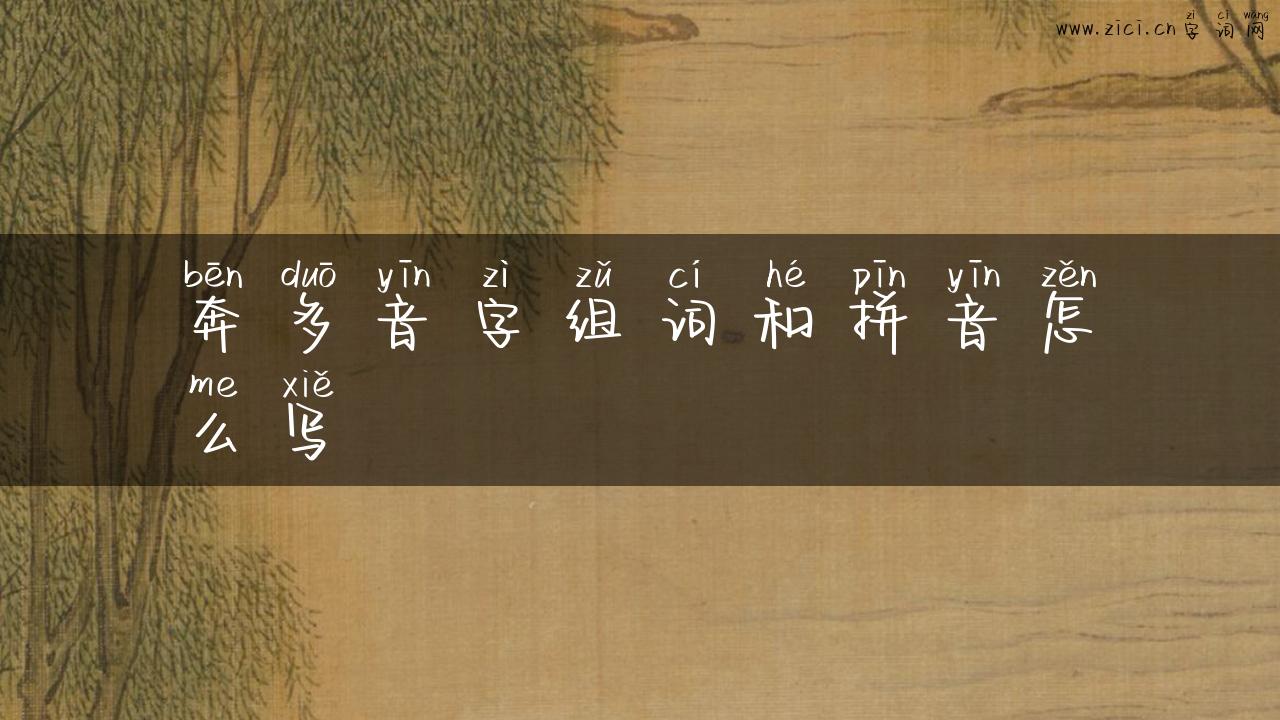 zì cí wǎng
www.zici.cn 字词网
bēn duō yīn zì zǔ cí hé pīn yīn zěn
奔多音字组词和拼音怎
me xiě
么写